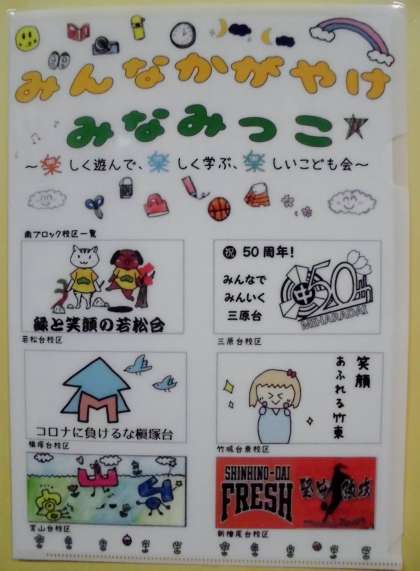 みんなかがやけ
みなみっこ
～楽しく遊んで、楽しく学ぶ、楽しいこども会～
南ブロック校区一覧
緑と笑顔の若松台
若松台校区
祝 50周年!
みんなで
みんいく
三原台
50
MIHARADAI
三原台校区
コロナに負けるな槇塚台
槇塚台校区
笑顔
あふれる竹東
竹城台東校区
宮山台校区
SHINHINO-DAI
FRESH
新檜尾台校区